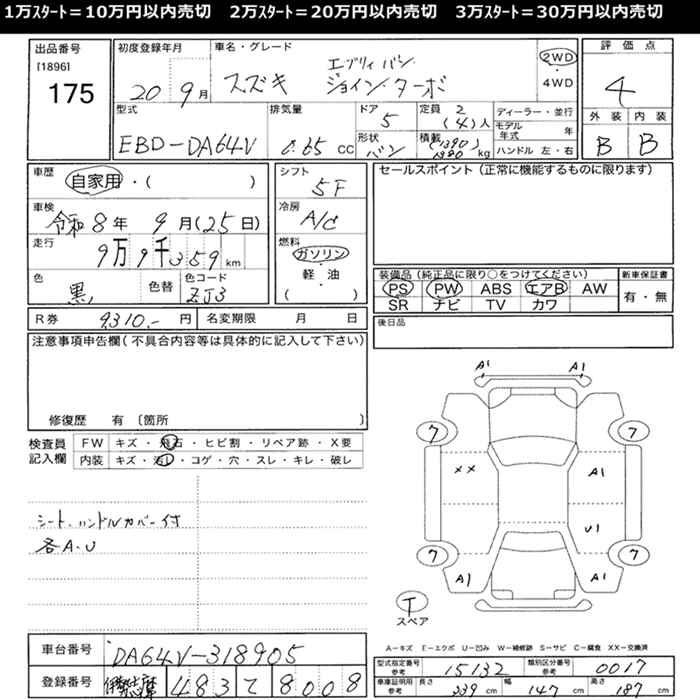 1万ｽﾀｰﾄ＝10万円以内売切　2万ｽﾀｰﾄ＝20万円以内売切　3万ｽﾀｰﾄ＝30万円以内売切
出品番号
[1896]
175
初度登録年月
20 9月
車名・グレード
スズキ エブリィ バン
ジョイン ターボ
2WD
・
4WD
評価点
4
外装 内装
B B
型式
EBD-DA64V
排気量
0.65 CC
ドア
5
形状
バン
定員 2
(4)人
積載 (1390)
1390 kg
ディーラー・並行
モデル年式 年
ハンドル 左・右
車歴
自家用・( )
車検
令和8年 9月(25日)
走行
9万9千359km
色
黒
色替
色コード
ZJ3
シフト
5F
冷房
A/C
燃料
ガソリン
・
軽・油
( )
セールスポイント（正常に機能するものに限ります）
装備品（純正品に限り○をつけてください）
PS PW ABS エアB AW
SR ナビ TV カワ
新車保証書
有・無
R券 9310.- 円 名変期限 月 日
後日品
注意事項申告欄（不具合内容等は具体的に記入して下さい）
修復歴 有〔箇所
検査員
記入欄
FW キズ・飛石・ヒビ割・リペア跡・X要
内装 キズ・汚レ・コゲ・穴・スレ・キレ・破レ
シート、ハンドルカバー付
各A.U
A1 A1
7 7
XX A1
U1
7 7
A1 A1
T
スペア
A－キズ E－エクボ U－凹み W－補修跡 S－サビ C－腐食 XX－交換済
車台番号 DA64V-318905
登録番号 伊勢志摩 483 て 8008
型式指定番号
参考
15132
類別区分番号
参考
0017
車庫証明用
参考
長さ 339 cm 幅 147 cm 高さ 187 cm